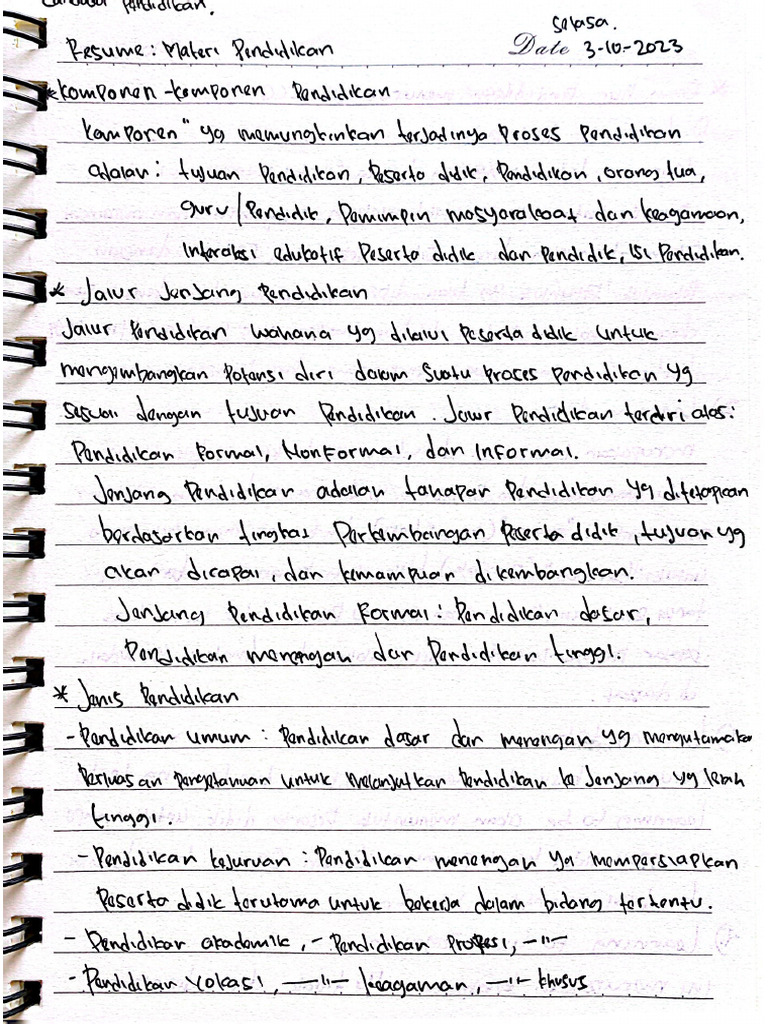 Landasan Pendidikan.
Selasa.
Resume : Materi Pendidikan
Date 3-10-2023
* Komponen-komponen Pendidikan
Komponen" yg memungkinkan terjadinya proses pendidikan
adalah : tujuan pendidikan, peserta didik, pendidikan, orang tua,
guru/pendidik, pemimpin masyarakat dan keagamaan,
interaksi edukatif peserta didik dan pendidik, isi pendidikan.
* Jalur Jenjang Pendidikan
Jalur pendidikan wahana yg dilalui peserta didik untuk
mengembangkan potensi diri dalam suatu proses pendidikan yg
sesuai dengan tujuan pendidikan. Jalur pendidikan terdiri atas :
Pendidikan Formal, Nonformal, dan Informal.
Jenjang pendidikan adalah tahapan pendidikan yg ditetapkan
berdasarkan tingkat perkembangan peserta didik, tujuan yg
akan dicapai, dan kemampuan dikembangkan.
Jenjang pendidikan Formal : Pendidikan dasar,
Pendidikan menengah dan Pendidikan tinggi.
* Jenis Pendidikan
- Pendidikan umum : Pendidikan dasar dan menengah yg mengutamakan
perluasan pengetahuan untuk melanjutkan pendidikan ke jenjang yg lebih
tinggi.
- Pendidikan kejuruan : Pendidikan menengah yg mempersiapkan
peserta didik terutama untuk bekerja dalam bidang tertentu.
- Pendidikan akademik, - Pendidikan Profesi, —"—
- Pendidikan Vokasi, —"— keagaman, —"— khusus